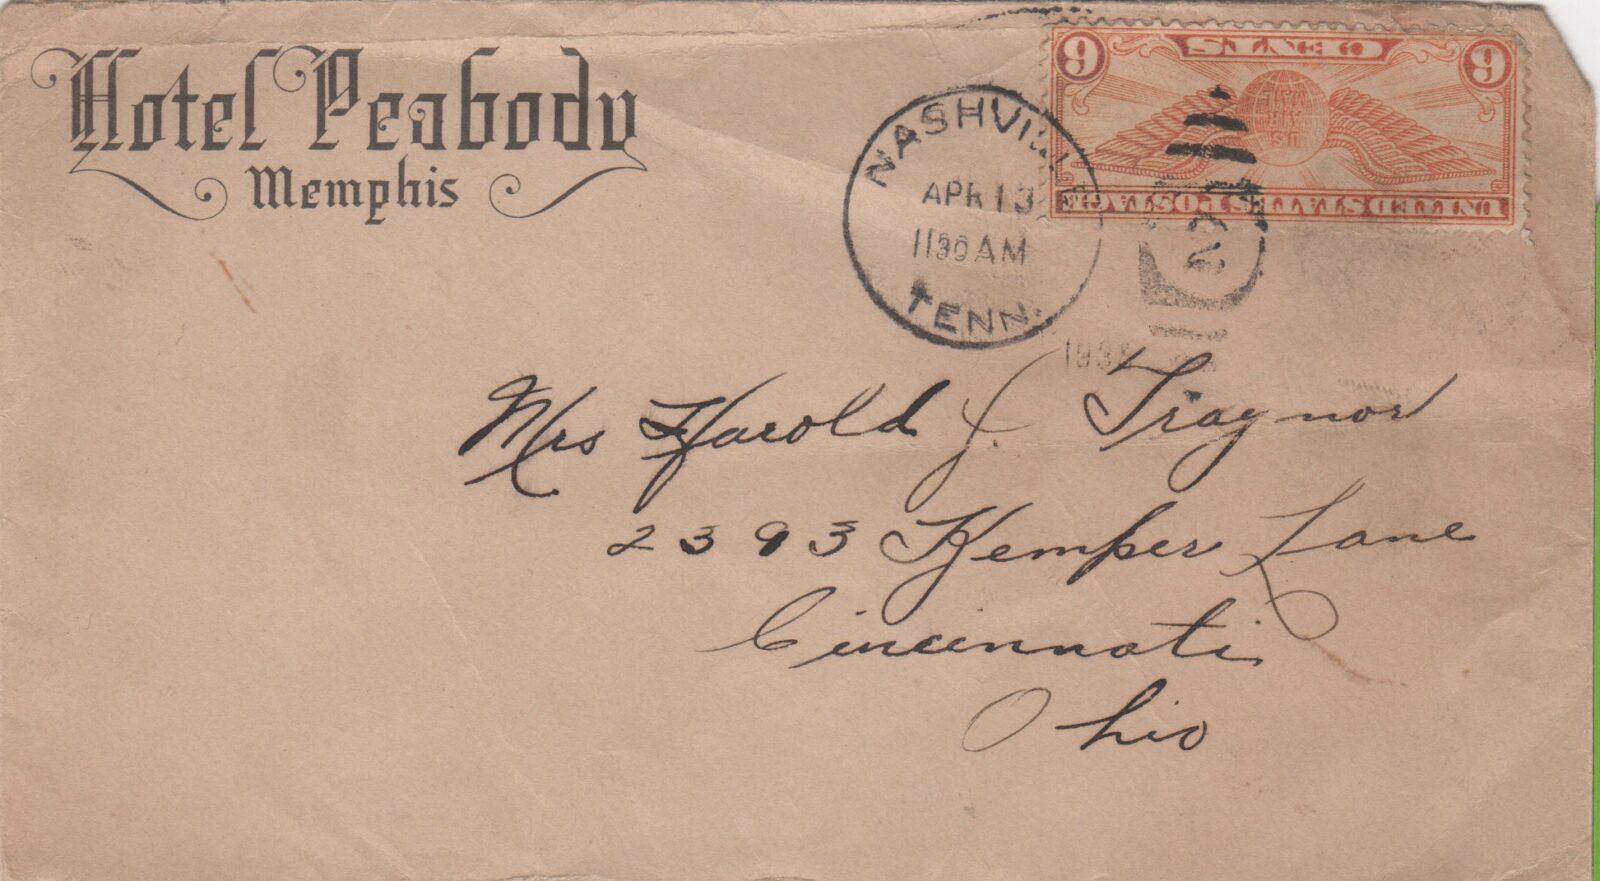 Hotel Peabody
Memphis
NASHVILLE
APR 13
1130 AM
TENN.
6 CENTS 6
U.S. AIR MAIL
UNITED STATES POSTAGE
2
Mrs Harold J. Traynor
2393 Kemper Lane
Cincinnati
Ohio